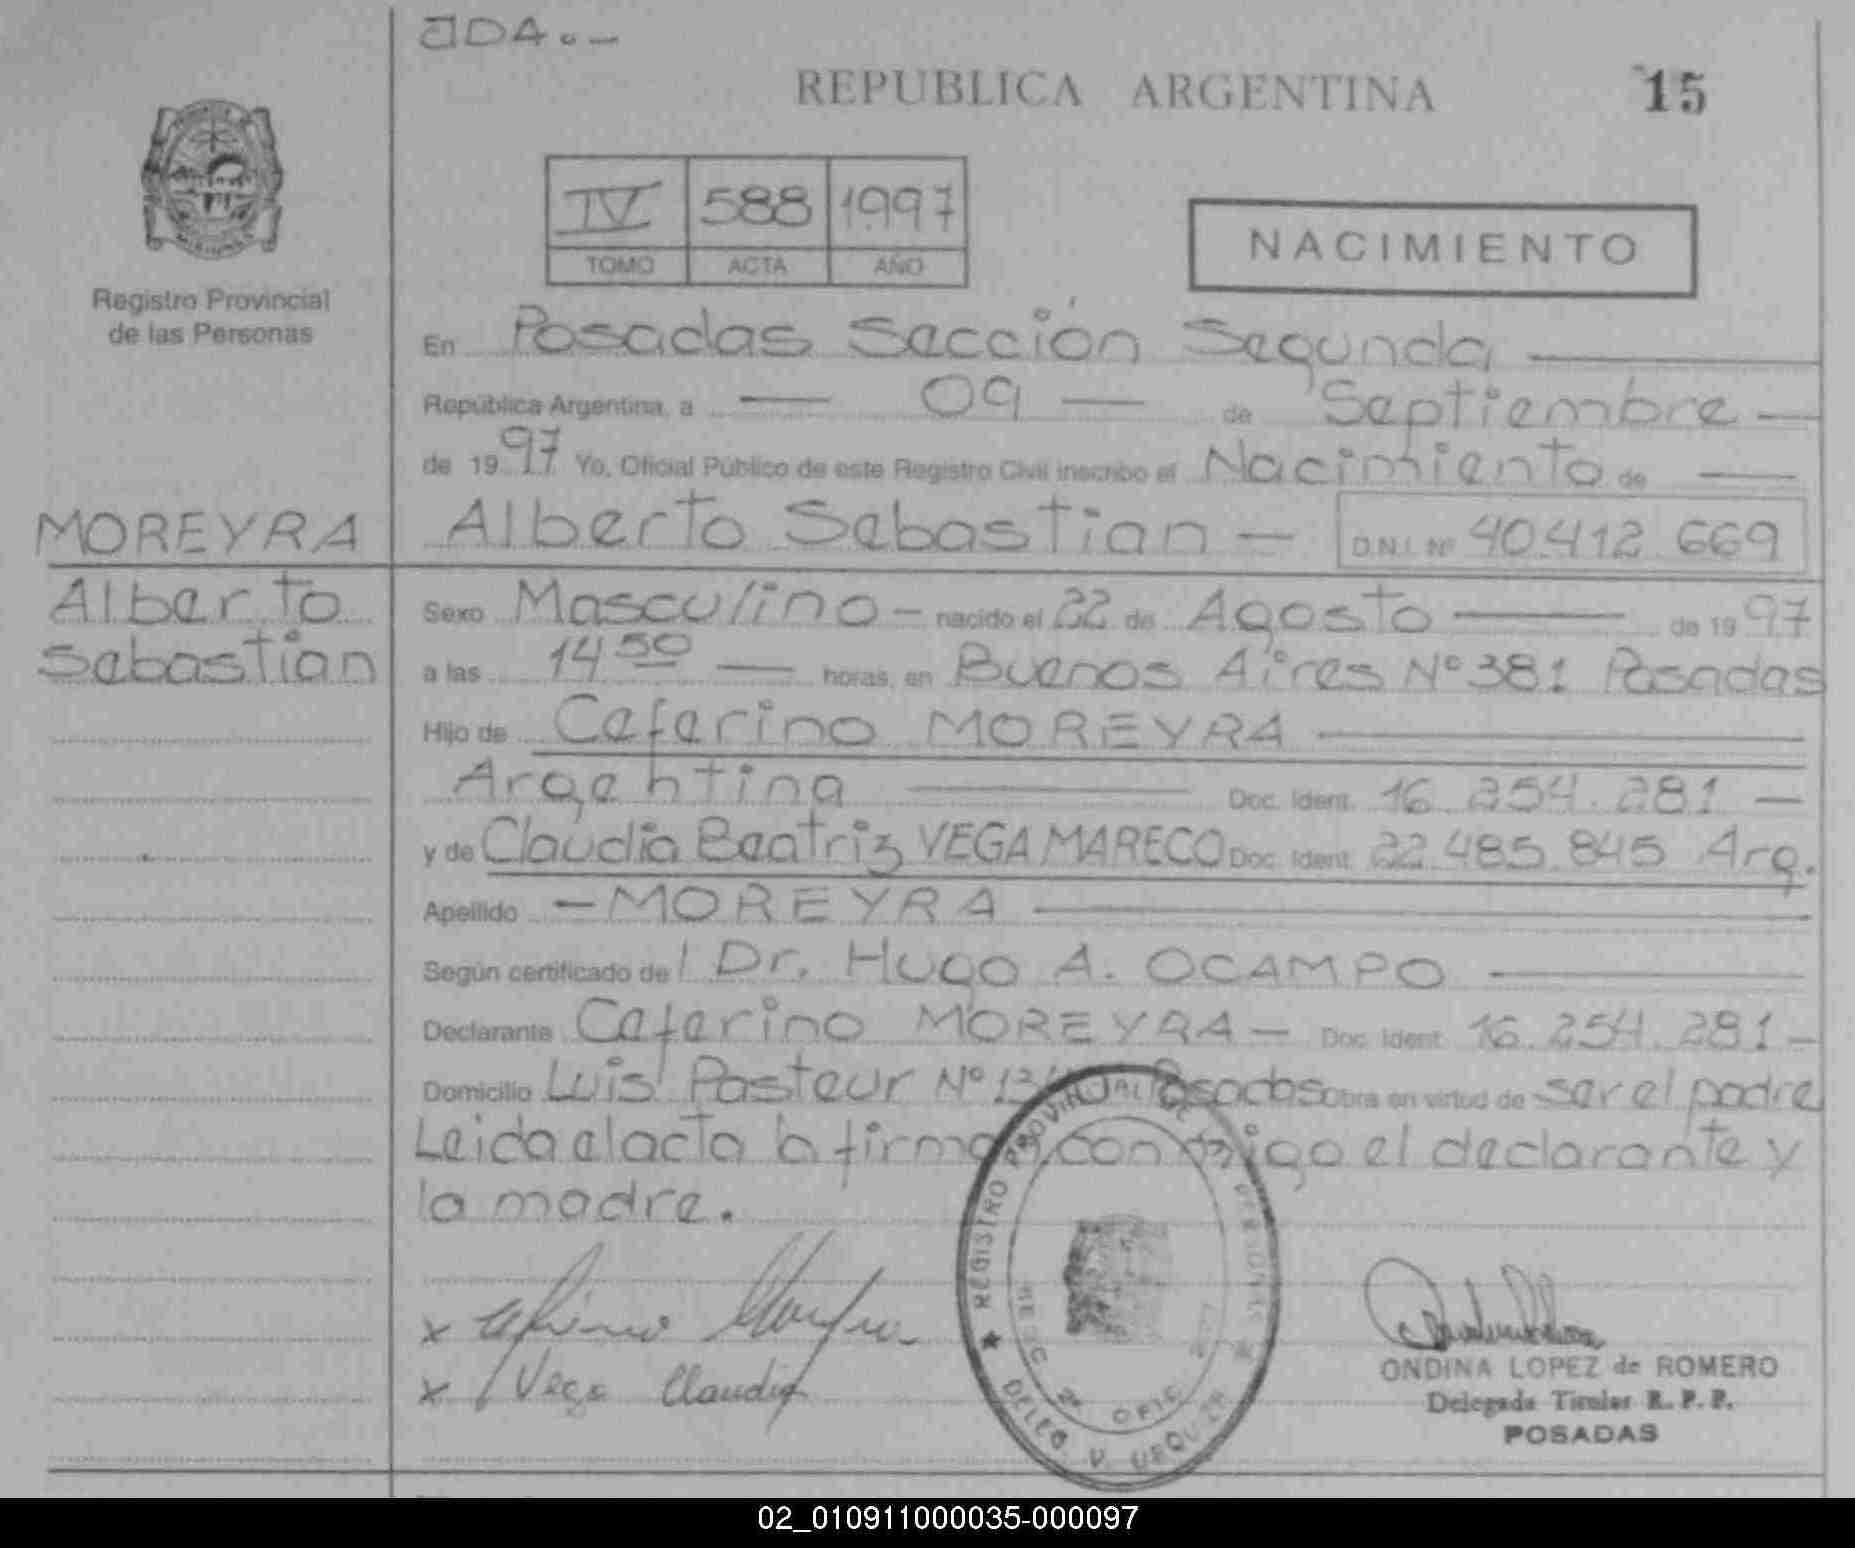 JDA.-
REPUBLICA ARGENTINA 15
IV 588 1997
TOMO ACTA AÑO
NACIMIENTO
Registro Provincial
de las Personas
En Posadas Sección Segunda
República Argentina, a — 09 — de Septiembre —
de 1997 Yo, Oficial Público de este Registro Civil inscribo el Nacimiento de —
MOREYRA Alberto Sebastian — D.N.I. Nº 40.412.669
Alberto Sexo Masculino — nacido el 22 de Agosto — de 1997
Sebastian a las 14 50 — horas, en Buenos Aires Nº 381 Posadas
Hijo de Ceferino MOREYRA —
Argentina — Doc. Ident. 16.254.281 —
y de Claudia Beatriz VEGA MARECO Doc. Ident. 22.485.845 Arg.
Apellido — MOREYRA —
Según certificado del Dr. Hugo A. OCAMPO —
Declarante Ceferino MOREYRA — Doc. Ident. 16.254.281 —
Domicilio Luis Pasteur Nº Posadas Obra en virtud de ser el padre
Leida el acta la firman con migo el declarante y
la madre.
x Ceferino Moreyra
x Vega Claudia
REGISTRO PROVINCIAL DE PERSONAS
DELEG. V. URQUIZA
2ª OFIC.
ONDINA LOPEZ de ROMERO
Delegada Titular R. P. P.
POSADAS
02_010911000035-000097